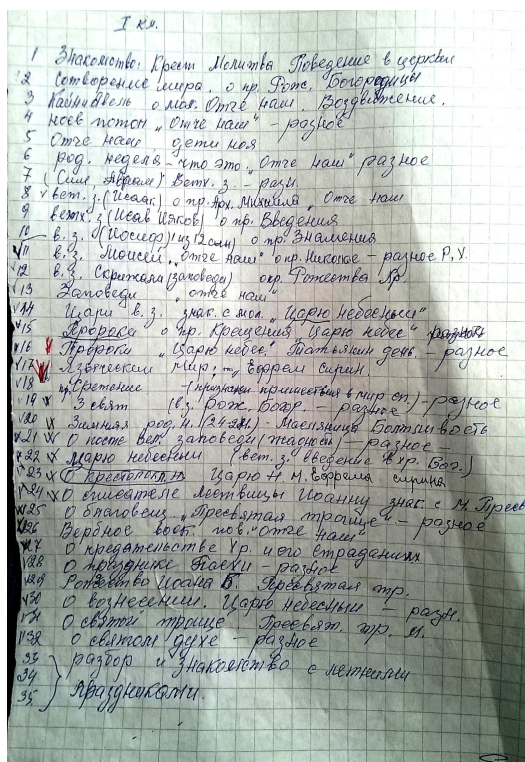 I кл.
1 Знакомство: Крест Молитва Поведение в церкви
2 Сотворение мира. о пр. Рож. Богородицы
3 Каин Авель о мол. Отче наш. Воздвижение.
4 ноев потоп "Отче наш" - разное
5 Отче наш, дети ноя
6 род. неделя - что это, "Отче наш" разное
7 (Сим, Авраам) Ветх. з. - разн.
8 вет. з. (Исаак) о пр. Арх. Михаила, Отче наш
9 ветх. з (Исав Иаков) о пр. Введения
10 в. з. (Иосиф) из 12 о пр. Знамения
11 в. з. Моисей "отче наш" о пр. Николая - разное Р. Х.
12 в. з. Скрижали (заповеди) о пр. Рожества Хр.
13 Заповеди "отче наш"
14 Цари в. з. знак. с мол. "Царю небесный"
15 Пророки о пр. Крещения "Царю небес"
16 Пророки "Царю небес" Татьянин день. - разное
17 Языческий мир, Ефрем сирин.
18 Сретение - (признаки пришествия в мир сп.) - разное
19 3 свят (в.з. Рож. Богр. - разное
20 Зимняя род. н. - Масляница Болтливость
21 О посте Вел. заповеди - разное -
22 Царю небесный (вет. з. введение в хр. Бог.)
23 О крестопокл. н Царю Н. М. Ефрема сирина
24 О списателе лествицы Иоанну знак. с М. Пресв
25 О благовещ. "Пресвятая троице" - разное
26 Вербное воск. пов. "отче наш"
27 О предательстве Хр. и его страданиях
28 О празднике Пасхи - разное
29 Иоана Б. Пресвятая тр.
30 О вознесении. Царю небесный - разн.
31 О святой троице - Пресвят. тр. м.
32 О святом духе - разное
33 разбор и знакомство с летними
34
35 праздниками.